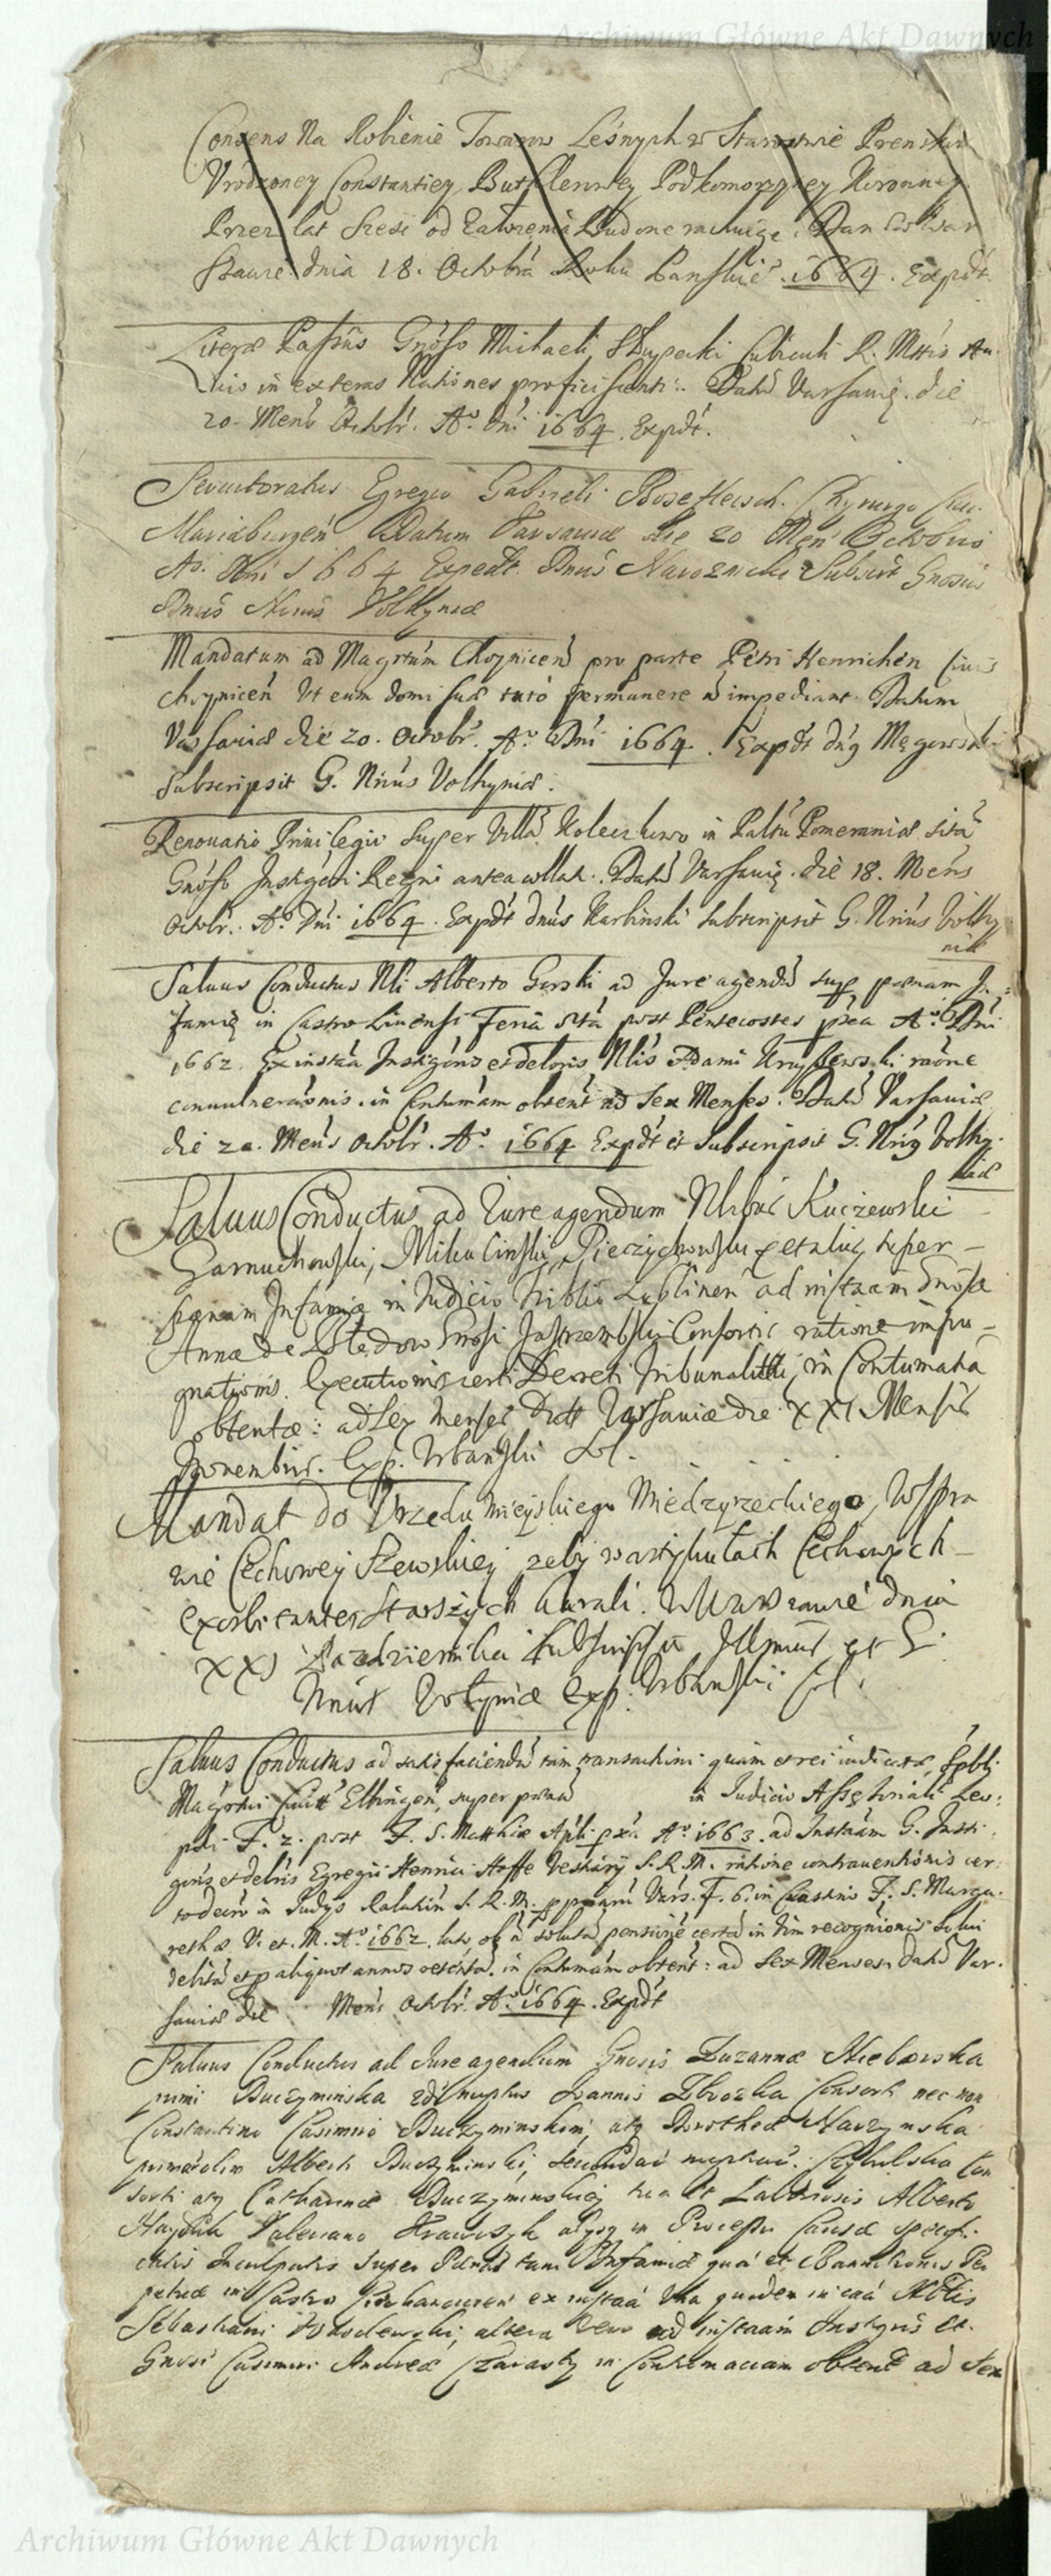 Archiwum Główne Akt Dawnych
Consens Na Robienie Towarow Leśnych w Starostwie Prenskim
Vrodzoney Constantiey Butlerowey Podkomorzyney Koronney
Przez lat sześć od Zawzęnia Budone rachuiąc. Dan w War
szawie dnia 18. Octobra Roku Panskie° 1664. Expdt
Literæ Passus Gnoso Michaeli Słupecki Cubiculi R. Mttis Au
lico in exteras Nationes proficiscenti. Datu Varsavię die
20. Mens Octobr. A° Dni 1664. Expdt.
Servitoratus Egregio Gabrieli Chyrurgo
Mariaeburgen Datum Varsaviæ die 20 Men Octobris
A°. Dni 1664 Expedt. Dnus Subscr Gnosus
Dnus Nrius Volhyniæ
Mandatum ad Magrtum Choynicen pro parte Petri Henrichen Civis
choynicen Vt eum domi suæ tuto permanere n impediant. Datum
Varsaviæ die 20. Octobr. A° Dni 1664. Expdt dng
subscripsit G. Nrius Volhyniæ.
Renouatio Priuilegio super Villa in Paltu Pomeraniæ sita
Gnoso Instigati Regni antea collat. Datu Varsavię. die 18. Mens
Octobr. A° Dni 1664. Expdt dnus Karlinski subscripsit G. Nrius Volhy
niæ
Saluus Conductus Nli Alberto Gorski ad Jure agendu sup pœnam In=
famię in Castro Livensi Feria 6ta post Pentecostes pxa A° Dni
1662. Ex insta Instigoris et deloris Nlis Adami raone
convulneraonis in Contumam obtent ad sex Menses. Datu Varsaviæ
die 20. Mens Octobr. A° 1664 Expdt et subscripsit G. Nrig Volhy.
niæ
Saluus Conductus ad Iure agendum Nlibus Kuczewski
Garnuchowski, Pieczychowski et aliis super
pœnam Infamiæ in Iudicio Triblis Lublinen ad instaam Gnosæ
Annæ de Gnosi Jastrzembski Consortis ratione impu-
gnationis Executionis certi Decreti Tribunalitii, in Contumatia
obtentæ: ad sex menses Datt Varsaviæ die XXI Mensis
Novembris. Exp. Vrbanski
Mandat do Vrzedu Mieyskiego Miedzyrzeckiego, W spra
wie Cechowey Szewskiey, zeby w artykułach Cechowych
exorbitantes starszych karali. W Warszawie dnia
XXI Pazdziernika subscripsit Illmus et G.
Nriut Volyniæ Exp. Vrbanski
Saluus Conductus ad satisfaciendu tam transactioni quam et rei iudicatæ, Spbli
Magrtui Civitt Elbingen, super pœna in Iudicio Assessoriali Leo:
poli F. 2. post F. S. Matthiæ Apli pxa A° 1663. ad Instaam G. Insti
goris et deloris Egregii Henrici S. R. M. ratione contraventionis cer
to decro in Iudys Relatin S. R. M. p pnam Vars. F. 6. in Crastino F. S. Marga
rethæ V. et M. A° 1662. lato, ob n soluta pensione certa in vim recognitionis solui
debita et p aliquot annos retenta. in Contumam obtent: ad sex Menses. Datu Var-
saviæ die Mens Octobr. A° 1664. Expdt
Saluus Conductus ad Iure agendum Gnosis Zuzannæ
primi Buczyminska 2di nuptus Ioannis Zbrozka Consorti nec non
Constantino Casimiro Buczyminskim, atq Dorotheæ
primo olim Alberti Buczyminski, secundar nuptiar. Con
sorti atq Catharinæ Buczyminskiey tum et Laboriosis Alberto
Hayduk Valeriano Krawczyk aliysq in Processu Causæ specifi-
catis Inculpatis super Pœnas tam Infamiæ qua et Bannitionis Per
petuæ in Castro ex instaa Vna quidem in caa Nblis
Sebastiani altera vero ad instaam Instigoris et
Gnosi Casimiri Andreæ in Contumaciam obtent ad sex
Archiwum Główne Akt Dawnych